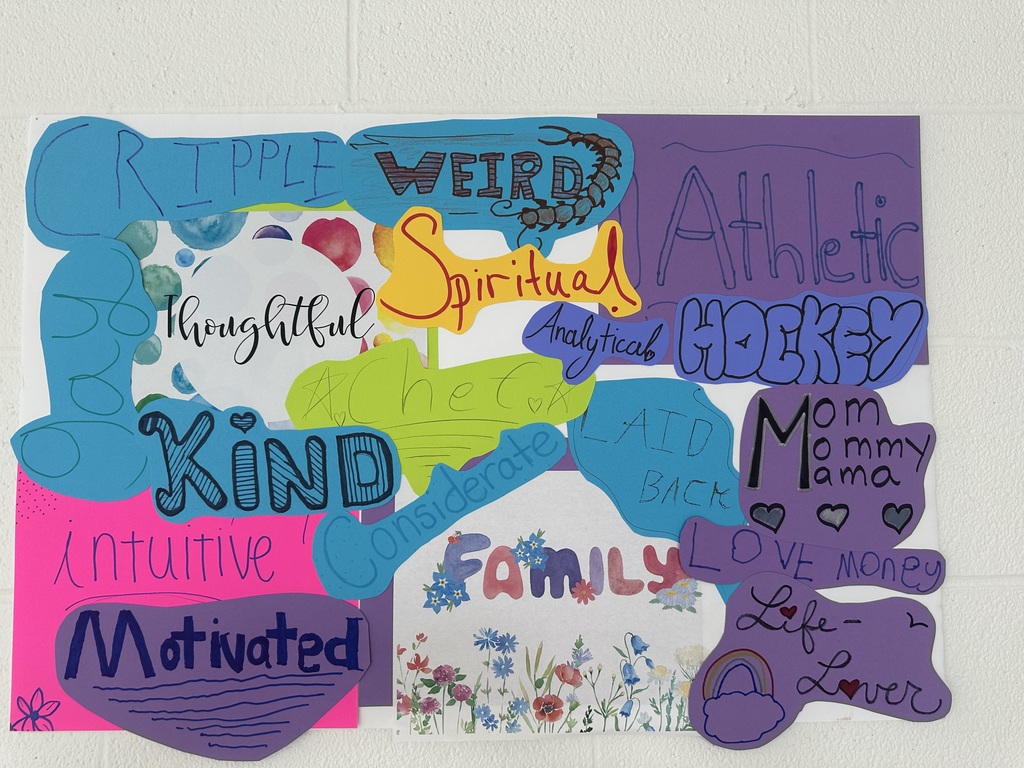 CRIPPLE
WEIRD
Athletic
Spiritual
Thoughtful
Analytical
HOCKEY
Chef
KIND
LAID
BACK
Mom
Mommy
Mama
Considerate
intuitive
FAMILY
LOVE MONEY
Motivated
Life-
Lover